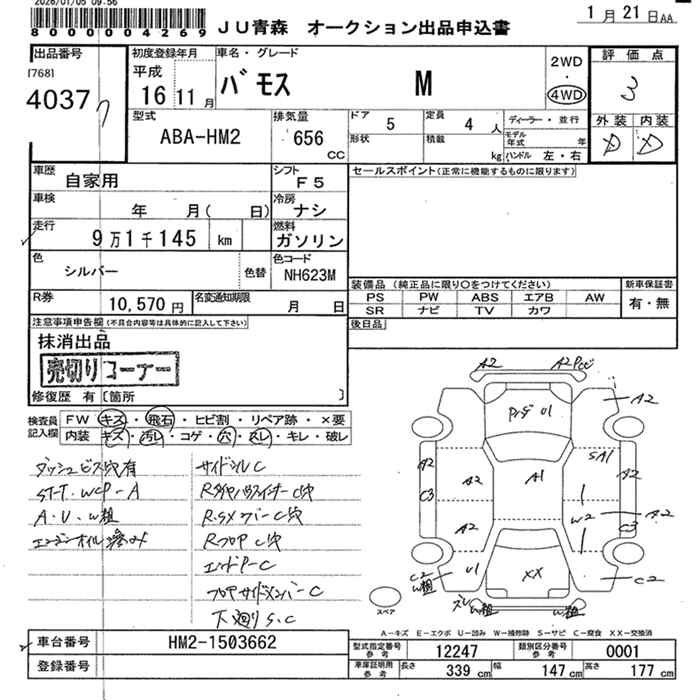 2026/01/05 09:56
8000000004269 JU青森 オークション出品申込書 1月21日AA
出品番号 初度登録年月 車名・グレード 2WD・4WD 評価点
[768]
4037 平成 16 11月 バモス M 3
型式 排気量 ドア 5 定員 4人 ディーラー・並行 外装 内装
ABA-HM2 656 CC 形状 積載 kg モデル年式 年 ハンドル 左・右 D D
車歴 自家用 シフト F5 セールスポイント(正常に機能するものに限ります)
車検 年 月( 日) 冷房 ナシ
走行 9万1千145 km 燃料 ガソリン
色 シルバー 色替 色コード NH623M
装備品 (純正品に限り○をつけてください) 新車保証書
R券 10,570円 名変通知期限 月 日 PS PW ABS エアB AW 有・無
SR ナビ TV カワ
注意事項申告欄(不具合内容等は具体的に記入して下さい) 後日品
抹消出品
売切りコーナー
修復歴 有 [箇所 ]
検査員記入欄 FW キズ・飛石・ヒビ割・リペア跡・×要
内装 キズ・汚レ・コゲ・穴・スレ・キレ・破レ
ダッシュビス穴有 サイドシルC
ST-T.WCP-A
A.U.W粗
エンジンオイル滲み RフロアC穴
エンドP-C
フロアサイドメンバーC
下廻りS.C
A2 A2
A2
A2 A2 A1 SA1 A2
C3 W2 A2
A2 C3
U1 XX C2
C2
W粗 W粗 W粗
スペア
A-キズ E-エクボ U-凹み W-補修跡 S-サビ C-腐食 XX-交換済
車台番号 HM2-1503662 型式指定番号 参考 12247 類別区分番号 参考 0001
登録番号 車庫証明用 参考 長さ 339cm 幅 147cm 高さ 177cm